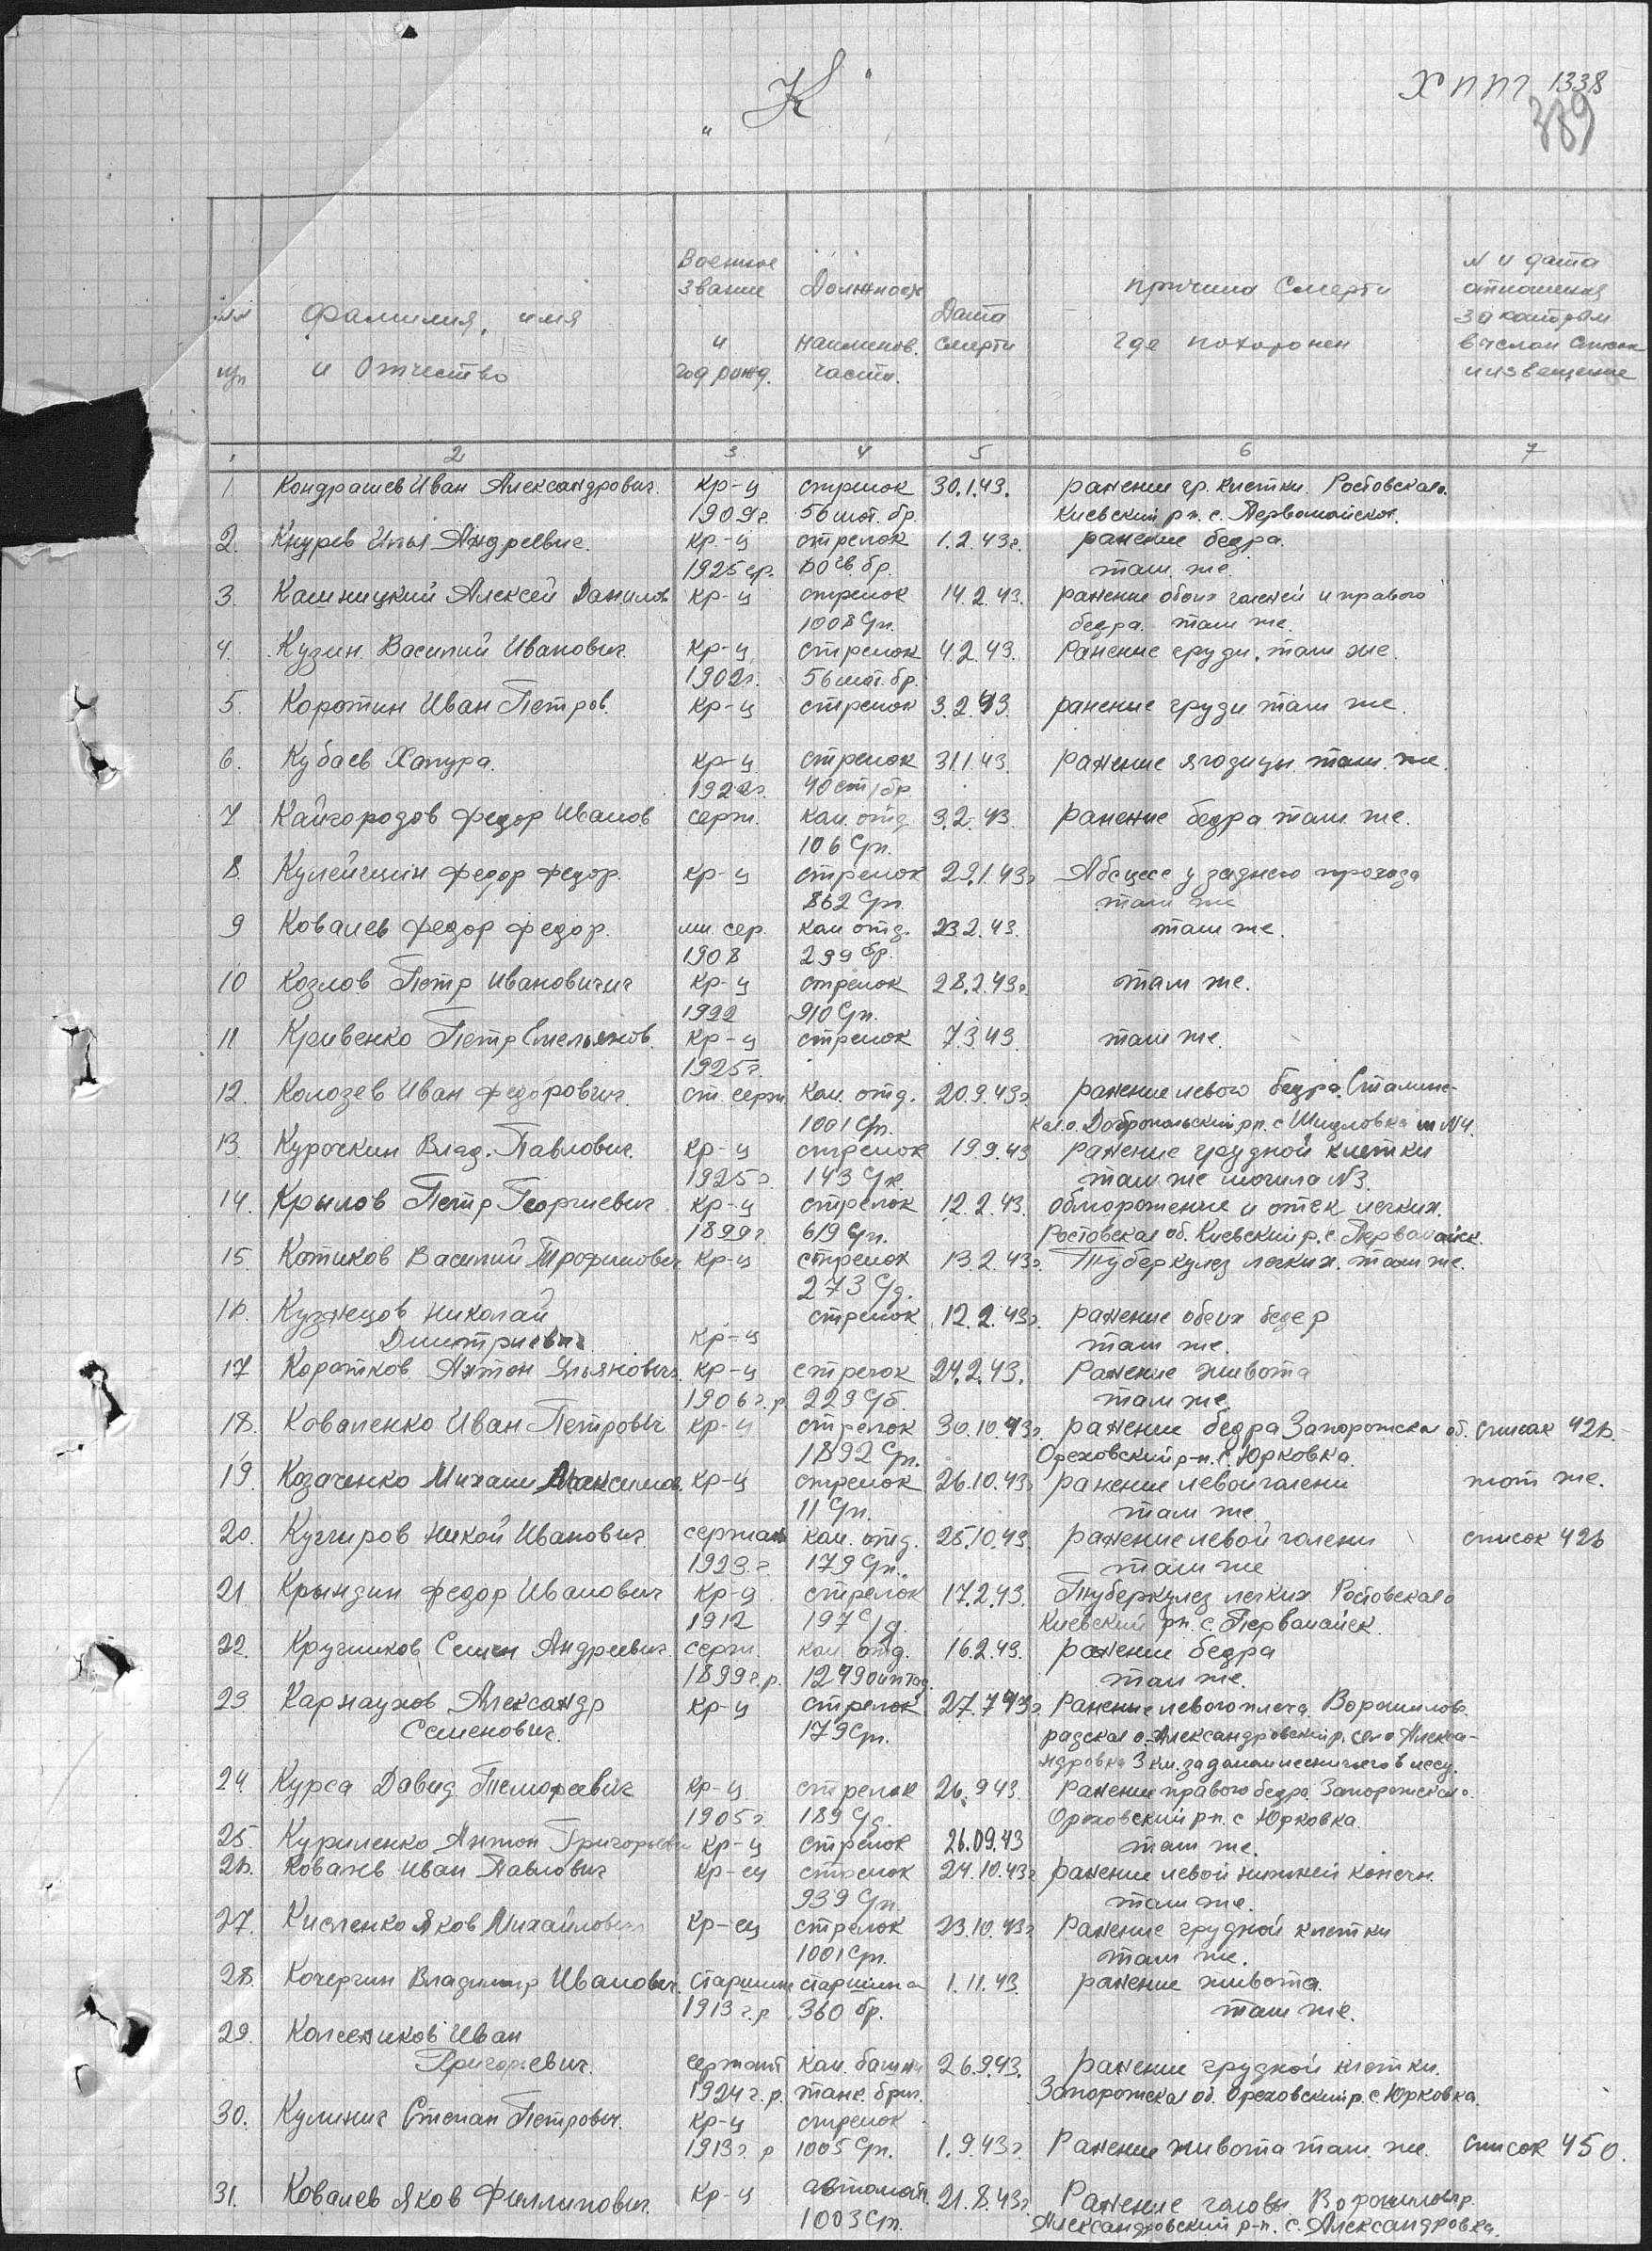 „К“
ХППГ 1338
389
№№ пп
Фамилия, имя и Отчество
Военное звание и год рожд.
Должность наименов. части.
Дата смерти
Причина смерти где похоронен
N и дата отношения за которым выслан список и извещение
1 2 3 4 5 6 7
1 Кондрашев Иван Александрович. кр-ц стрелок 30.1.43. ранение гр. клетки. Ростовская о.
1909г. 56 мот. бр. Киевский рн. с. Первомайское.
2. Кнурев Илья Андреевич. кр-ц стрелок 1.2.43г. ранение бедра.
1925 гр. там же.
3. Кашницкий Алексей Данилов кр-ц стрелок 14.2.43. ранение обоих голеней и правого
1008 Сп. бедра. там же.
4. Кузин Василий Иванович. кр-ц стрелок 4.2.43. Ранение груди, там же.
1902г. 56 мот. бр.
5. Коротин Иван Петров. кр-ц стрелок 3.2.43. ранение груди там же.
6. Кубаев Хапура. кр-ц стрелок 31.1.43. ранение ягодицы там же.
40 ст/бр
7 Кайгородов Федор Иванов серж. ком. отд. 3.2.43 ранение бедра там же.
106 Сп.
8. Кулейшин Федор Федор. кр-ц стрелок 22.1.43г Абсцесс у заднего прохода
862 Сп. там же
9 Ковалев Федор Федор. мл. сер. ком. отд. 23.2.43. там же.
1908 299 бр.
10 Козлов Петр Ивановичич кр-ц стрелок 28.2.43г. там же.
1922 910 Сп.
11 Кривенко Петр Емельянов. кр-ц стрелок 7.3.43. там же.
1925г.
12. Колозев Иван Федорович. ст. серж. ком. отд. 20.9.43г. ранение левого бедра. Сталинс-
1001 Сп. кая о. Добропольский рн. с Шидловка м N4.
13. Курочкин Влад. Павлович. кр-ц стрелок 19.9.43 ранение грудной клетки
1925г. 143 Сп. там же могила N3.
14. Крылов Петр Георгиевич. кр-ц стрелок 12.2.43. обморожение и отек легких.
1899г. 619 Сп. Ростовская об. Киевский р. с. Первомайск.
15 Котиков Василий Трофимович кр-ц стрелок 13.2.43г. Туберкулез легких. там же.
273 Сд.
16. Кузнецов Николай стрелок 12.2.43г. ранение обеих бедер
Дмитриевич. кр-ц там же.
17 Коротков Антон Ульянович. кр-ц стрелок 24.2.43. Ранение живота
1906 г.р. 229 Сб. там же.
18. Коваленко Иван Петрович кр-ц стрелок 30.10.43г. ранение бедра Запорожская об. список 426.
1892 Сп. Ореховский р-н. с. Юрковка.
19. Козаченко Михаил Максимов. кр-ц стрелок 26.10.43г ранение левой голени тот же.
11 Сп. там же.
20. Иванович. сержант ком. отд. 25.10.43. ранение левой голени список 426
1923.г 179 Сп. там же
21. Крындин Федор Иванович кр-ц стрелок 17.2.43. Туберкулез легких Ростовская о
1912 197 Сд. Киевский рн. с. Первомайск.
22. Кручинков Семен Андреевич. серж. ком отд. 16.2.43. ранение бедра
1899 г.р. там же.
23 Карнаухов Александр кр-ц стрелок 27.7.43г. Ранение левого плеча Ворошилов-
Семенович. 179 Сп. радская о. Александровский р. село Алекса-
ндровка 3 км. за домом лесничего в лесу.
24. Курса Давид Тимофеевич кр-ц стрелок 26.9.43. Ранение правого бедра Запорожская о.
1905г. 189 Сд. Ореховский рн. с Юрковка.
25. Куриленко Антон Григорьевич кр-ц стрелок 26.09.43 там же.
26. Ковалев Иван Павлович кр-ец стрелок 24.10.43г ранение левой нижней конечн.
939 Сп. там же.
27. Кисленко Яков Михайлович кр-ец стрелок 23.10.43г Ранение грудной клетки
1001 Сп. там же.
28. Кочергин Владимир Иванович. старшина старшина 1.11.43. ранение живота.
1913 г.р. 360 бр. там же.
29. Колесников Иван
Григорьевич. сержант ком. башни 26.9.43. ранение грудной клетки.
1924 г.р. танк. бриг. Запорожская об. Ореховский р. с. Юрковка.
30. Кулинич Степан Петрович. кр-ц стрелок
1913г. р 1005 Сп. 1.9.43г Ранение живота там же. список 450.
31. Ковалев Яков Филлипович. кр-ц автомат. 21.8.43г. Ранение головы Ворошиловгр.
1003 Сп. Александровский р-н. с. Александровка.